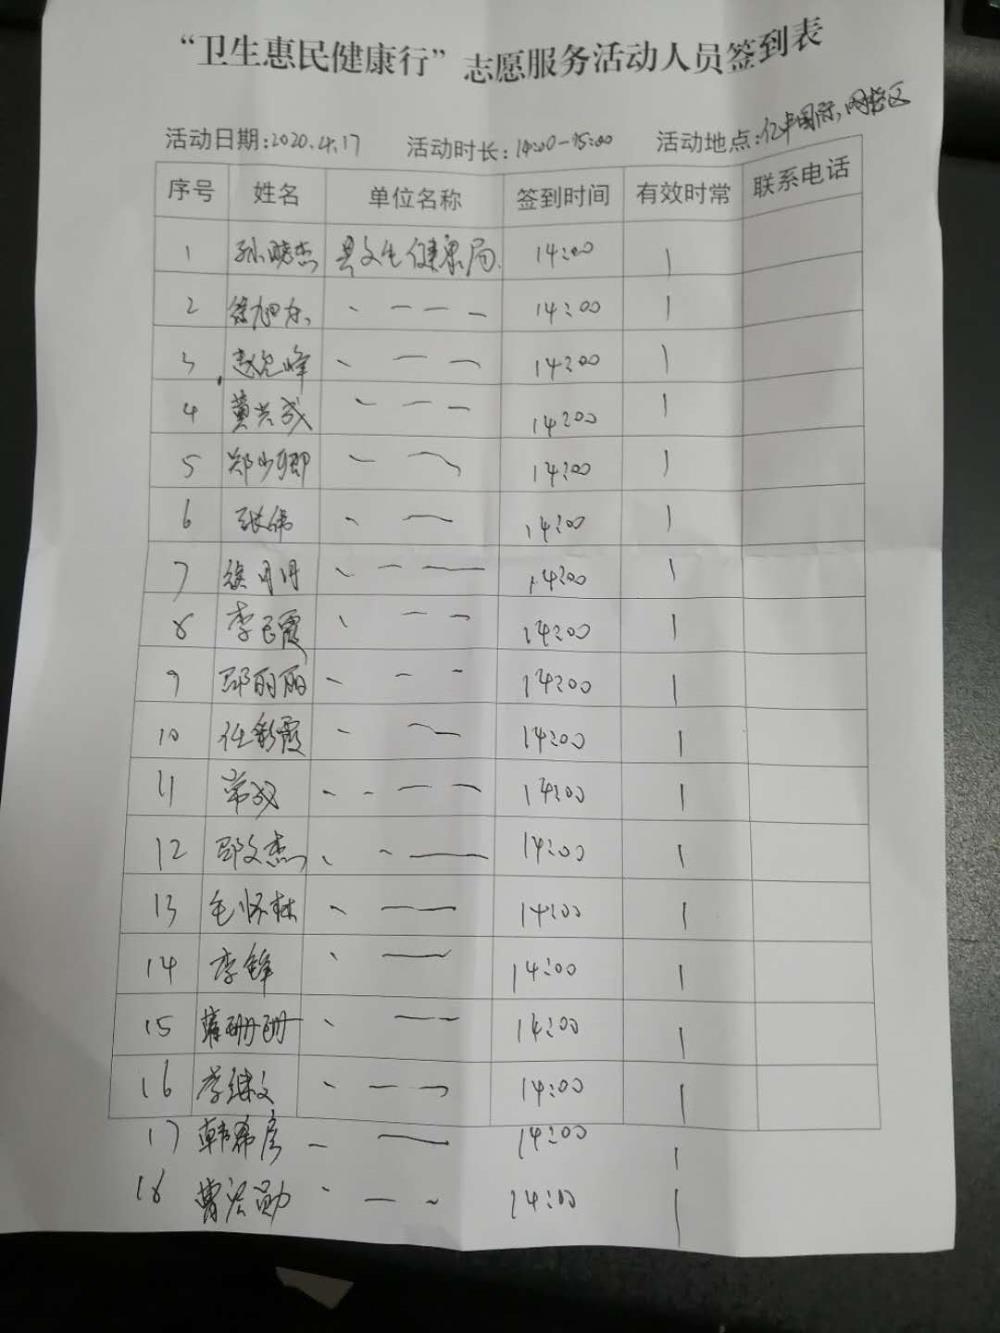 “卫生惠民健康行”志愿服务活动人员签到表
活动日期:2020.4.17 活动时长:14:00-15:00 活动地点:亿丰国际,网格区
序号 姓名 单位名称 签到时间 有效时常 联系电话
1 孙晓杰 县卫生健康局 14:00 1
2 徐旭东 、 — — — 14:00 1
3 赵 峰 、 — — 14:00 1
4 黄兴成 、 — — 14:00 1
5 郑少卿 — — 14:00 1
6 张伟 、 — 14:00 1
7 月丹 、 — — 14:00 1
8 李 霞 、 — — 14:00 1
9 邵丽丽 、 — - 14:00 1
10 任彩霞 - — 14:00 1
11 常成 - - — — 14:00 1
12 邵文杰 、 - — 14:00 1
13 毛怀林 、 — 14:00 1
14 李锋 、 — 14:00 1
15 蒋珊珊 、 — 14:00 1
16 李继文 、 — — 14:00 1
17 韩希房 — — 14:00 1
18 曹 勋 - — - 14:00 1